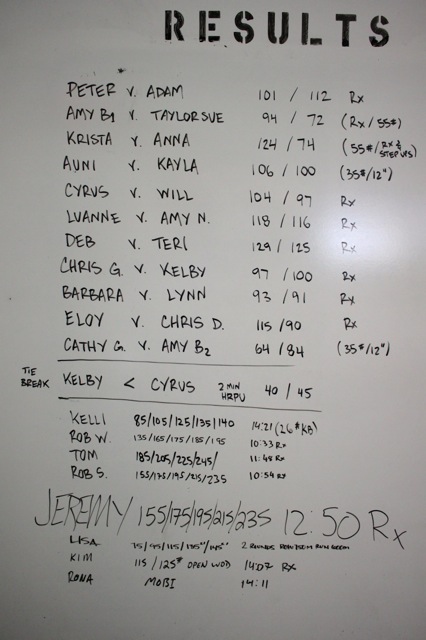 RESULTS
PETER v. ADAM 101 / 112 Rx
AMY B1 v. TAYLOR SUE 94 / 72 (Rx / 55#)
KRISTA v. ANNA 124 / 74 (55# / Rx & STEP UPS)
AUNI v. KAYLA 106 / 100 (35#/12")
CYRUS v. WILL 104 / 97 Rx
LUANNE v. AMY N. 118 / 116 Rx
DEB v. TERI 129 / 125 Rx
CHRIS G. v. KELBY 97 / 100 Rx
BARBARA v. LYNN 93 / 91 Rx
ELOY v. CHRIS D. 115 / 90 Rx
CATHY G. v. AMY B2 64 / 84 (35#/12")
TIE BREAK KELBY < CYRUS 2 MIN HRPU 40 / 45
KELLI 85/105/125/135/140 14:21 (26# KB)
ROB W. 135/165/175/185/195 10:33 Rx
TOM 185/205/225/245/ 11:48 Rx
ROB S. 155/175/195/215/235 10:54 Rx
JEREMY 155/175/195/215/235 12:50 Rx
LISA 75/95/115/135/145 2 ROUNDS ROW 150M RUN
KIM 115 / 125# OPEN WOD 14:07 Rx
RONA MOBI 14:11